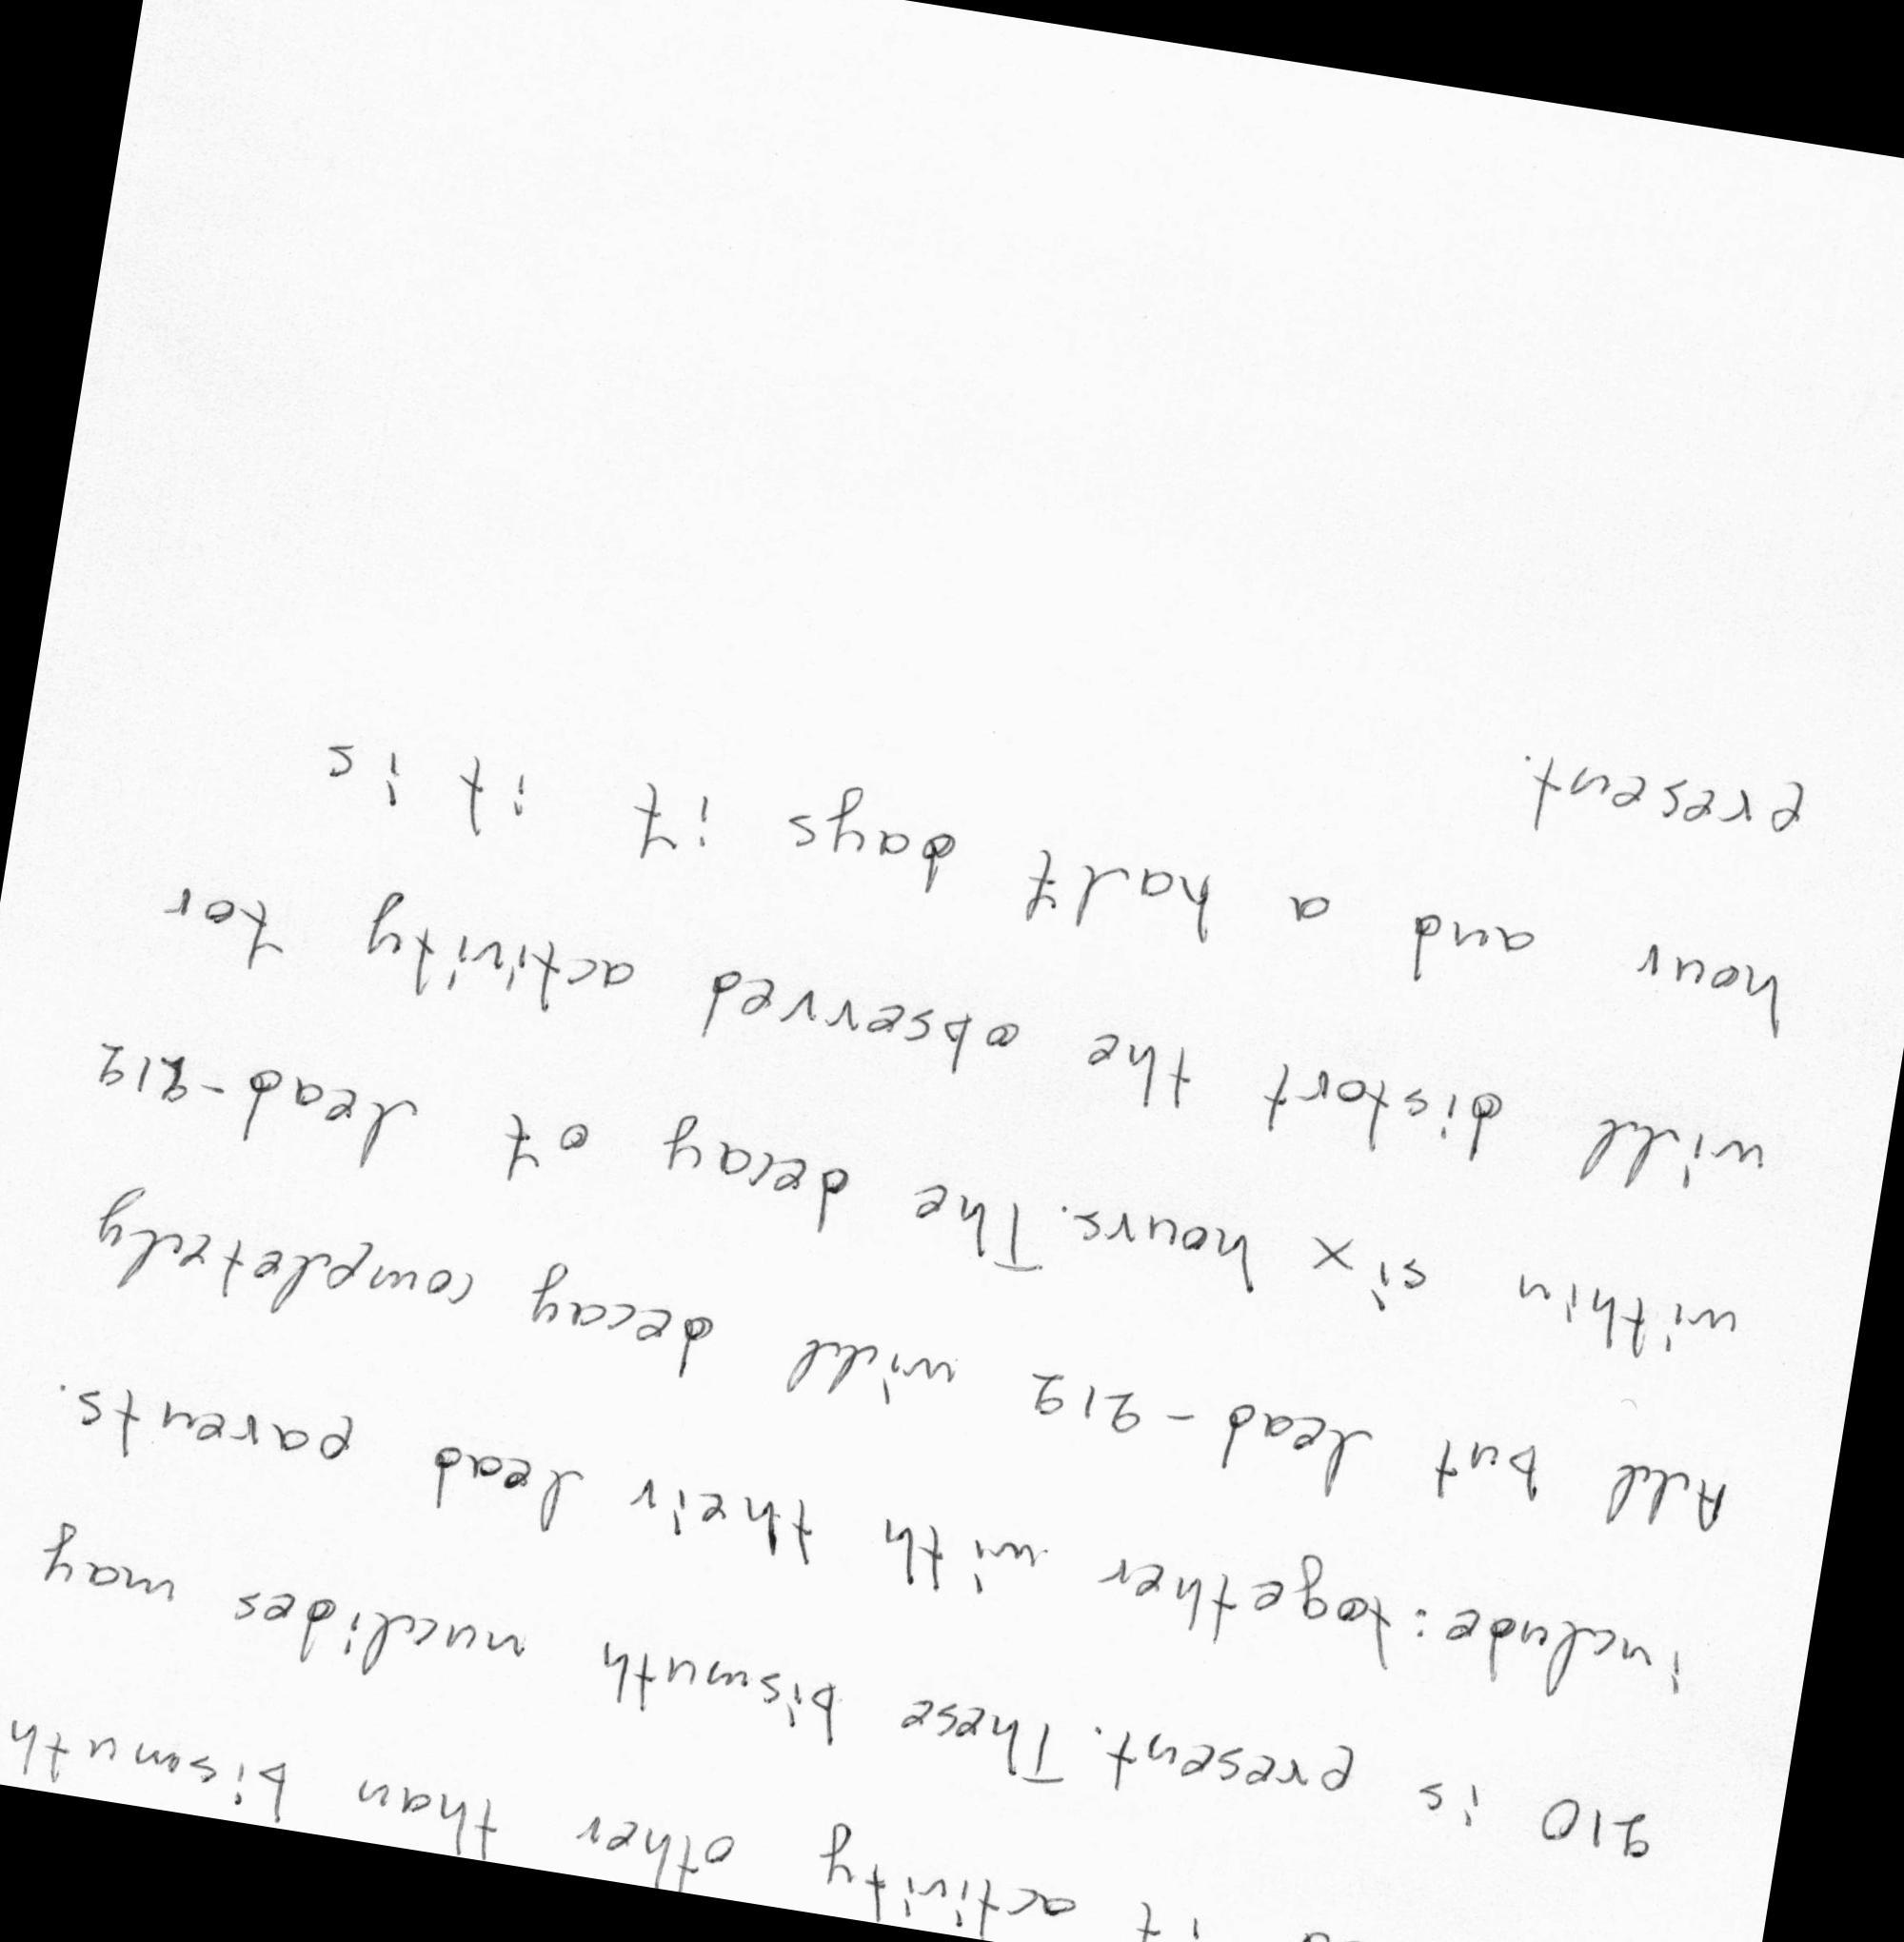 it activity other than bismuth
210 is present. These bismuth nuclides may
include: together with their lead parents.
All but lead - 212 will decay completely
within six hours. The decay of lead -212
will distort the observed activity for
hour and a half days if it is
present.